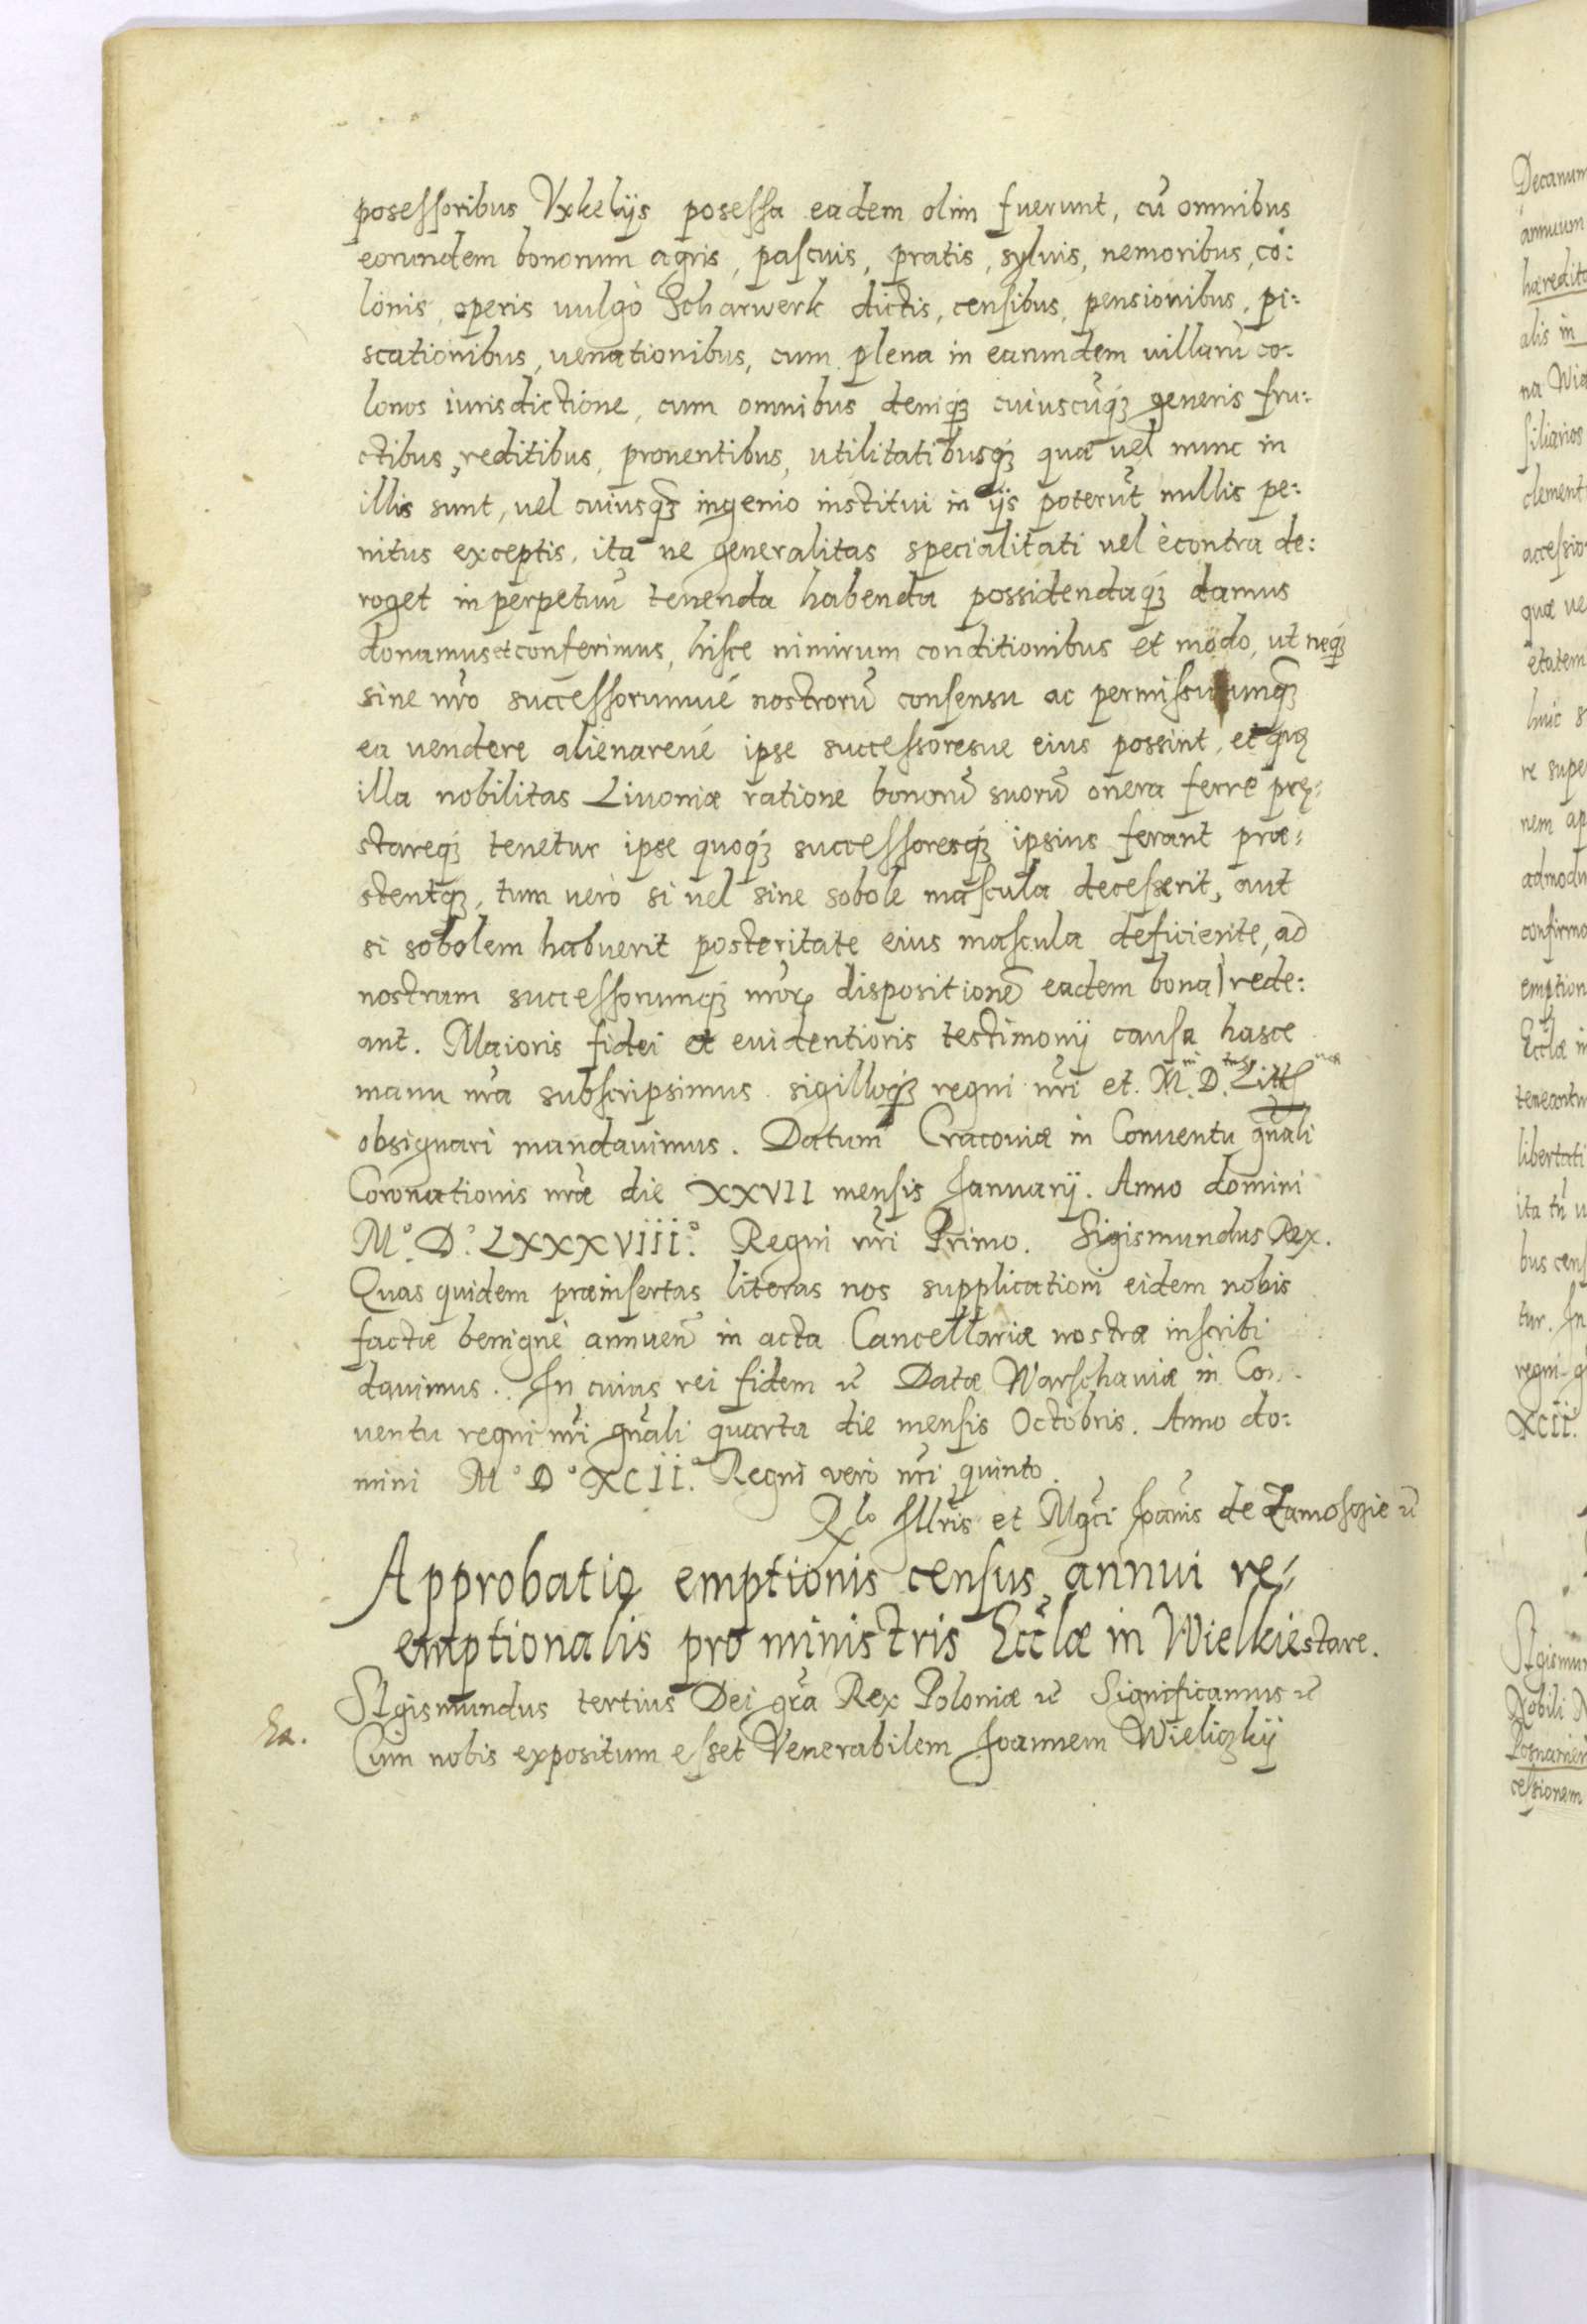 posessoribus Vxkelijs posessa eadem olim fuerunt, cū omnibus
eorundem bonorum agris, pascuis, pratis, syluis, nemoribus, co:
lonis, operis uulgò Scharwerk dictis, censibus, pensionibus, pi:
scationibus, uenationibus, cum plena in earundem uillarū co:
lonos iurisdictione, cum omnibus deniq́ꝫ cuiuscūq́ꝫ generis fru:
ctibus, reditibus, prouentibus, utilitatibusq́ꝫ quæ uel nunc in
illis sunt, uel cuiusqꝫ ingenio institui in ijs poterūt nullis pe:
nitus exceptis, ita ne generalitas specialitati uel ècontra de:
roget in perpetuū tenenda habenda possidendaq́ꝫ damus
donamus et conferimus, hisce nimirum conditionibus et modo, ut neq́ꝫ
sine nr̃o successorumué nostrorū consensu ac permissu unqꝫ
ea uendere alienareué ipse successoresue eius possint, et quę
illa nobilitas Liuoniæ ratione bonorū suorū onera ferre prę:
stareq́ꝫ tenetur ipse quoq́ꝫ successoresq́ꝫ ipsius ferant præ:
stentqꝫ, tum uerò si uel sine sobole mascula decesserit, aut
si sobolem habuerit posteritate eius mascula deficiente, ad
nostram successorumq́ꝫ nr̃orꝝ dispositionē eadem bona rede:
ant. Maioris fidei et euidentioris testimonij causa hasce
manu nr̃a subscripsimus sigilloq́ꝫ regni nr̃i et M. D. Litt
obsignari mandauimus. Datum Cracouiæ in Conuentu gñali
Coronationis nr̃æ die XXVII mensis Januarij. Anno domini
M° D° LXXXVIII° Regni nr̃i Primo. Sigismundus Rex.
Quas quidem præinsertas literas nos supplicationi eidem nobis
factæ benignè annuen̄ in acta Cancellariæ nostræ inscribi
dauimus. In cuius rei fidem ꝛc̃ Datæ Warschauiæ in Con
uentu regni nr̃i gñali quarta die mensis Octobris. Anno do:
mini M° D° XCII° Regni verò nr̃i quinto.
Rlo Illr̃is et Mgc̃i Joãnis de Zamoscie ꝛc̃
Approbatio emptionis census annui re:
emptionalis pro ministris Eccl̃æ in Wielkiestare.
SIgismundus tertius Dei gr̃a Rex Poloniæ ꝛc̃ Significamus ꝛc̃
Ea.
Cum nobis expositum esset Venerabilem Joannem Wieliczkij
Decanum
annuum
hæredita
alis in
na Wie
siliarios
clement
accessio
quæ ue
etatem
huic s
re supe
nem ap
admodu
confirma
emption
Eccl̃æ in
teneantu
libertati
ita tñ u
bus cens
tur. In
regni g
XCII.
SIgismun
Nobili
Posnanien
cessionem